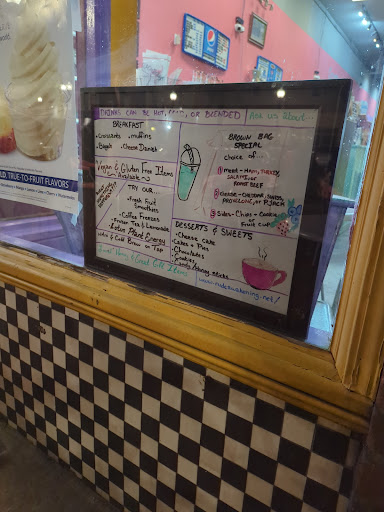 LD, TRUE-TO-FRUIT FLAVORS
DRINKS CAN BE HOT, ICED, OR BLENDED
Ask us about
BREAKFAST
Croissants
muffins
Bagels
Cheese Danish
Vegan & Gluten Free Items
Available
TRY OUR
Fresh Fruit
Smoothies
Coffee Freezes
Frozen Tea & Lemonade
Lotus Plant Energy
Nitro & Cold Brew on Tap
Local Honey & Great Gift Items
BROWN BAG
SPECIAL
choice of
1 meat - Ham, Turkey,
Salami, or
Roast Beef
2 cheese - Cheddar, Swiss,
Provolone, or P. Jack
3 sides - Chips + Cookie
or
Fruit cup
DESSERTS & SWEETS
Cheese cake
Cakes + Pies
Chocolates
Cookies
Candy / Honey Sticks
www.rudeawakening.net/
pepsi